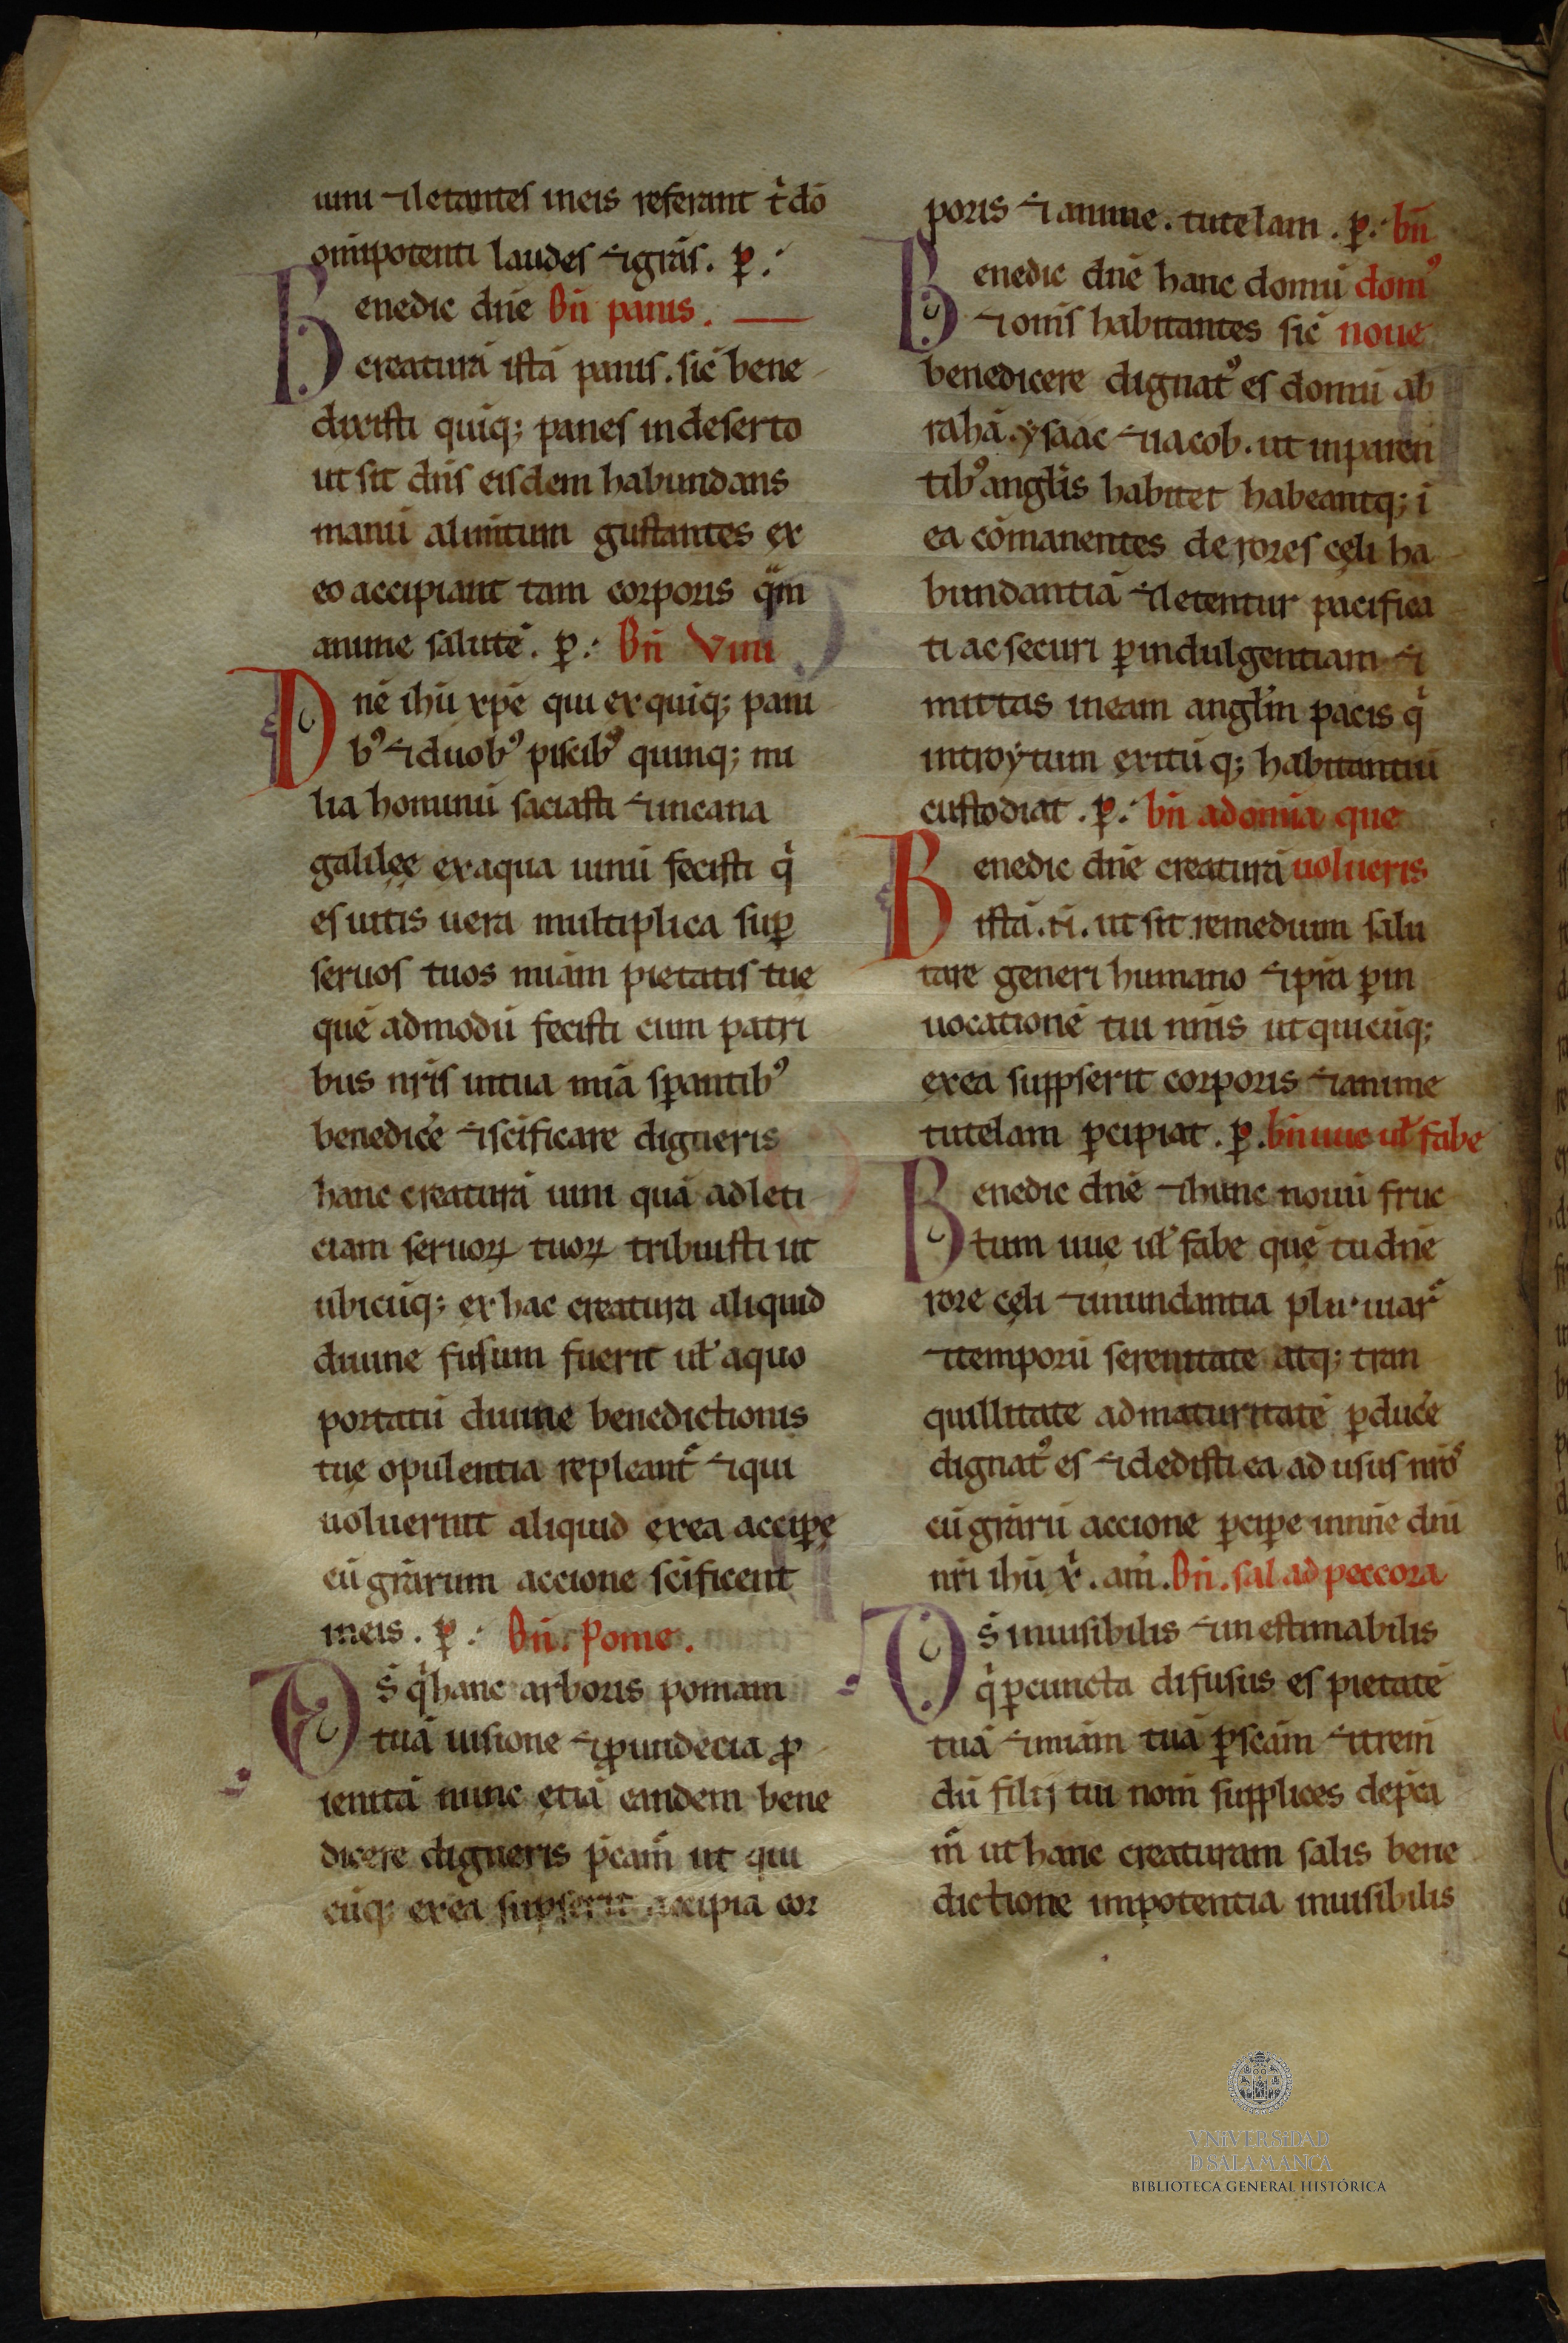 uini ⁊letantes ineis referant t̉ dō
om̄ipotenti laudes ⁊gr̄as. ꝑ.
Benedic dn̄e Bn̄ panis.
creaturā istā panis. sic̄ bene
dixisti quiq; panes indeserto
ut sit dn̄s eisdem habundans
manū alimtum gustantes ex
eo accipiant tam corporis qm̄
anime salutē. ꝑ. Bn̄ Vini
Dnē ihū xp̄e qui ex quiq; pani
b᷒ ⁊duob᷒ piscib᷒ quinq; mi
lia hominū saciasti ⁊incana
galilęę exaqua uinū fecisti q̉
es uitis uera multiplica suꝑ
seruos tuos mīam pietatis tuę
quē admodū fecisti cum patri
bus nr̄is intua mīa sꝑantib᷒
benedic̉e ⁊sc̄ificare digneris
hanc creaturā uini quā adleti
ciam seruoꝝ tuoꝝ tribuisti ut
ubicūq; ex hac creatura aliquid
diuine fusum fuerit ul̄ aquo
portatū diuine benedictionis
tuę opulentia repleant᷑ ⁊qui
uoluerint aliquid exea acciꝑe
cū gr̄arum accione sc̄ificent
ineis. ꝑ. Bn̄. Pome.
Ds̄ q̉ hanc arboris pomam
tuā uisione ⁊ꝓuidecia ꝓ
ienitā nunc etiā eandem bene
dicere digneris p̄cam᷑ ut qui
cūq; exea supserit accipia cor
poris ⁊anime. tutelam. ꝑ. bn̄
Benedic dn̄e hanc domū dom᷒
⁊om̄s habitantes sic̄ noue
benedicere dignat᷒ es domū ab
rahā. ysaac ⁊iacob. ut inparien
tib᷒ angl̄is habitet habeantq; ī
ea cōmanentes de rores cęli ha
bundantiā ⁊letentur pacifica
ti ac securi ꝑindulgentiam ⁊
mittas ineam angl̄m pacis q̉
introytum exitū q; habitantiū
custodiat. ꝑ. bn̄ adomīa que
Benedic dn̄e creaturā uolueris
istā. ī. ut sit remedium salu
tare generi humano ⁊p̄ra ꝑin
uocationē tui nn̄is ut quicūq;
exea supserit corporis ⁊anime
tutelam ꝑcipiat. ꝑ. bn̄ uue ul̄ fabe
Benedic dn̄e ⁊hunc nouū fruc
tum uuę ul̄ fabe quę tu dn̄e
rore cęli ⁊inundantia plu uiar᷑
⁊temporū serenitate atq; tran
quillitate ad maturitatē ꝑduc̉e
dignat᷒ es ⁊dedisti ea ad usus nr̄os
cū gr̄arū accione ꝑciꝑe innn̄e dn̄i
nr̄i ihū x̉. am̄. Bn̄. sal ad peccora
Ds̄ inuisibilis ⁊inestimabilis
q̉ ꝑcuncta difusus es pietatē
tuā ⁊mīam tuā ꝑsc̄am ⁊trem̄
dū filij tui nom̄ supplices dep̄ca
m᷑ ut hanc creaturam salis bene
dictione inpotentia inuisibilis
VNiVERSiDAD
D SALAMANCA
BIBLIOTECA GENERAL HISTÓRICA